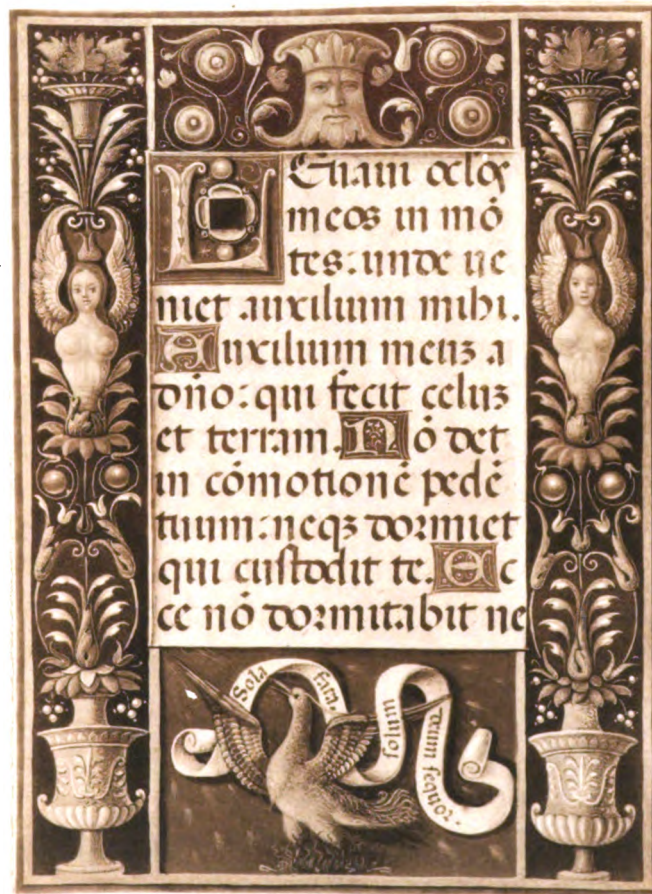 LEuaui oclos
meos in mō
tes: unde ue
niet auxilium mihi.
Auxilium meuz a
dño: qui fecit celuz
et terram. Nō det
in cōmotionē pedē
tuum: neqz dormiet
qui custodit te. Ec
ce nō dormitabit ne
Sola fata. solum deum sequor.